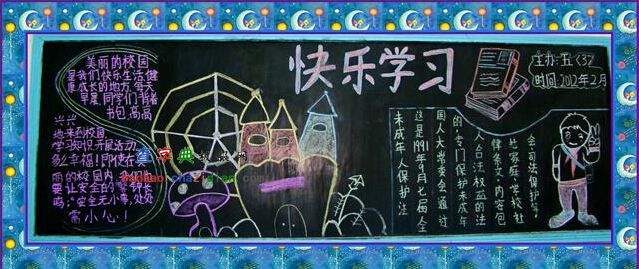 美丽的校园
是我们快乐生活健
康成长的地方,每天
早晨同学们背着
书包,高高
兴兴
地来到校园
学习知识,开展活动
多么幸福!即使在
丽的校园内,我们也
要让安全的警钟长
鸣:“安全无小事,处处
需小心!
快乐学习
主办:五<3>
时间:2012年2月
未成年人保护法
这是1991年9月七届全
国人大常委会通过
的,专门保护未成年
人合法权益的法
律条文,内容包
括家庭,学校,社
会,司法保护等